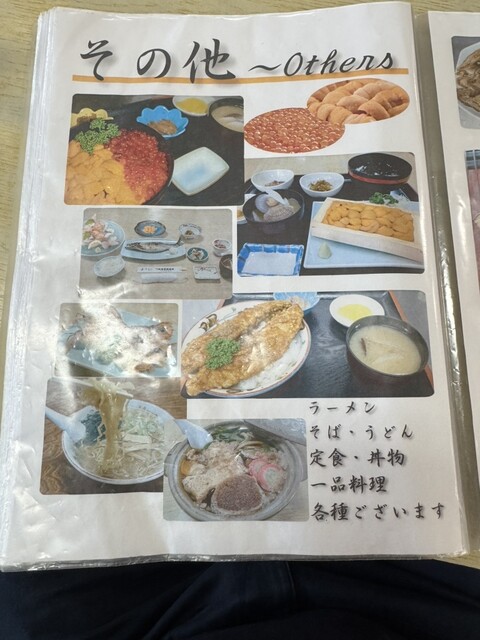 その他 ～Others
ラーメン
そば・うどん
定食・丼物
一品料理
各種ございます